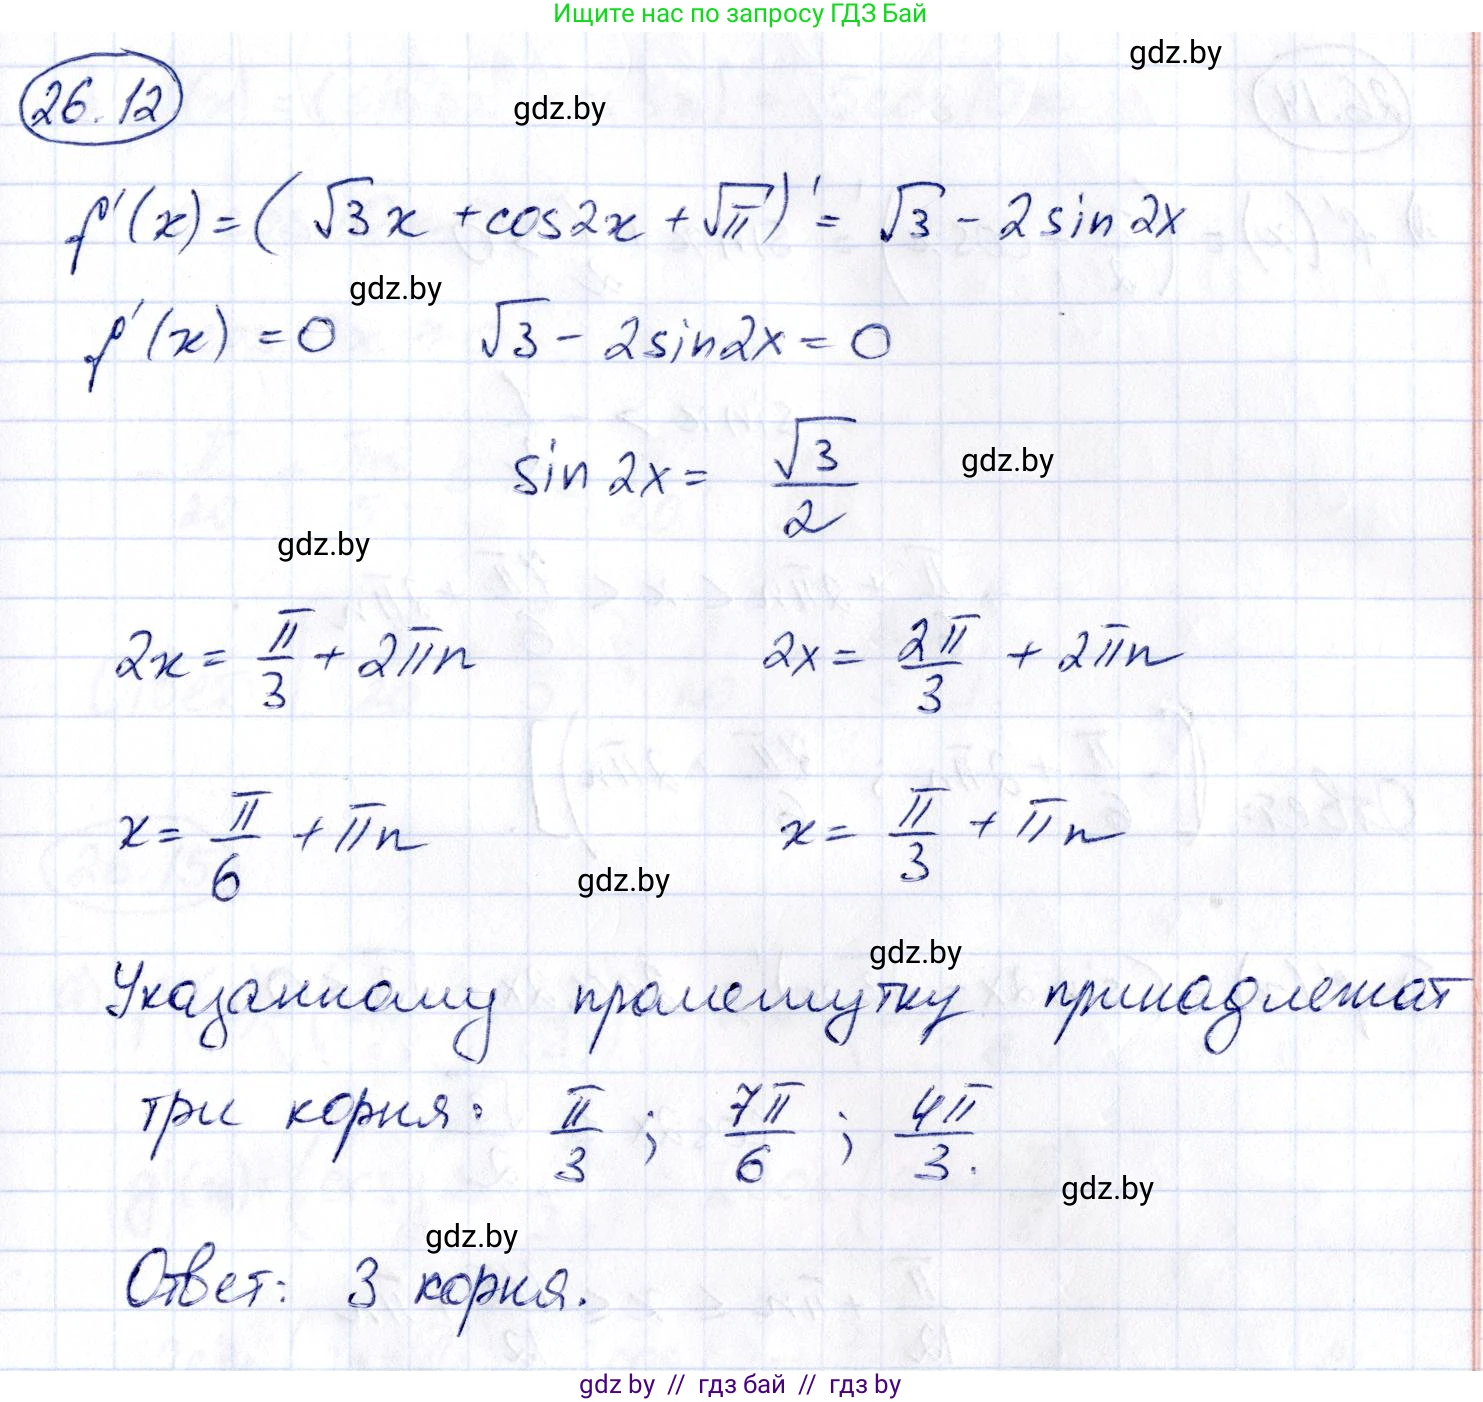 Ищите нас по запросу ГДЗ Бай
gdz.by
26.12
gdz.by
f'(x) = (√3x + cos2x + √π)' = √3 - 2sin2x
gdz.by
f'(x) = 0 √3 - 2sin2x = 0
sin 2x = √3/2
gdz.by
gdz.by
2x = π/3 + 2πn 2x = 2π/3 + 2πn
x = π/6 + πn x = π/3 + πn
gdz.by
gdz.by
Указанному промежутку принадлежат
три корня: π/3 ; 7π/6 ; 4π/3.
gdz.by
gdz.by
Ответ: 3 корня.
gdz by // гдз бай // гдз by